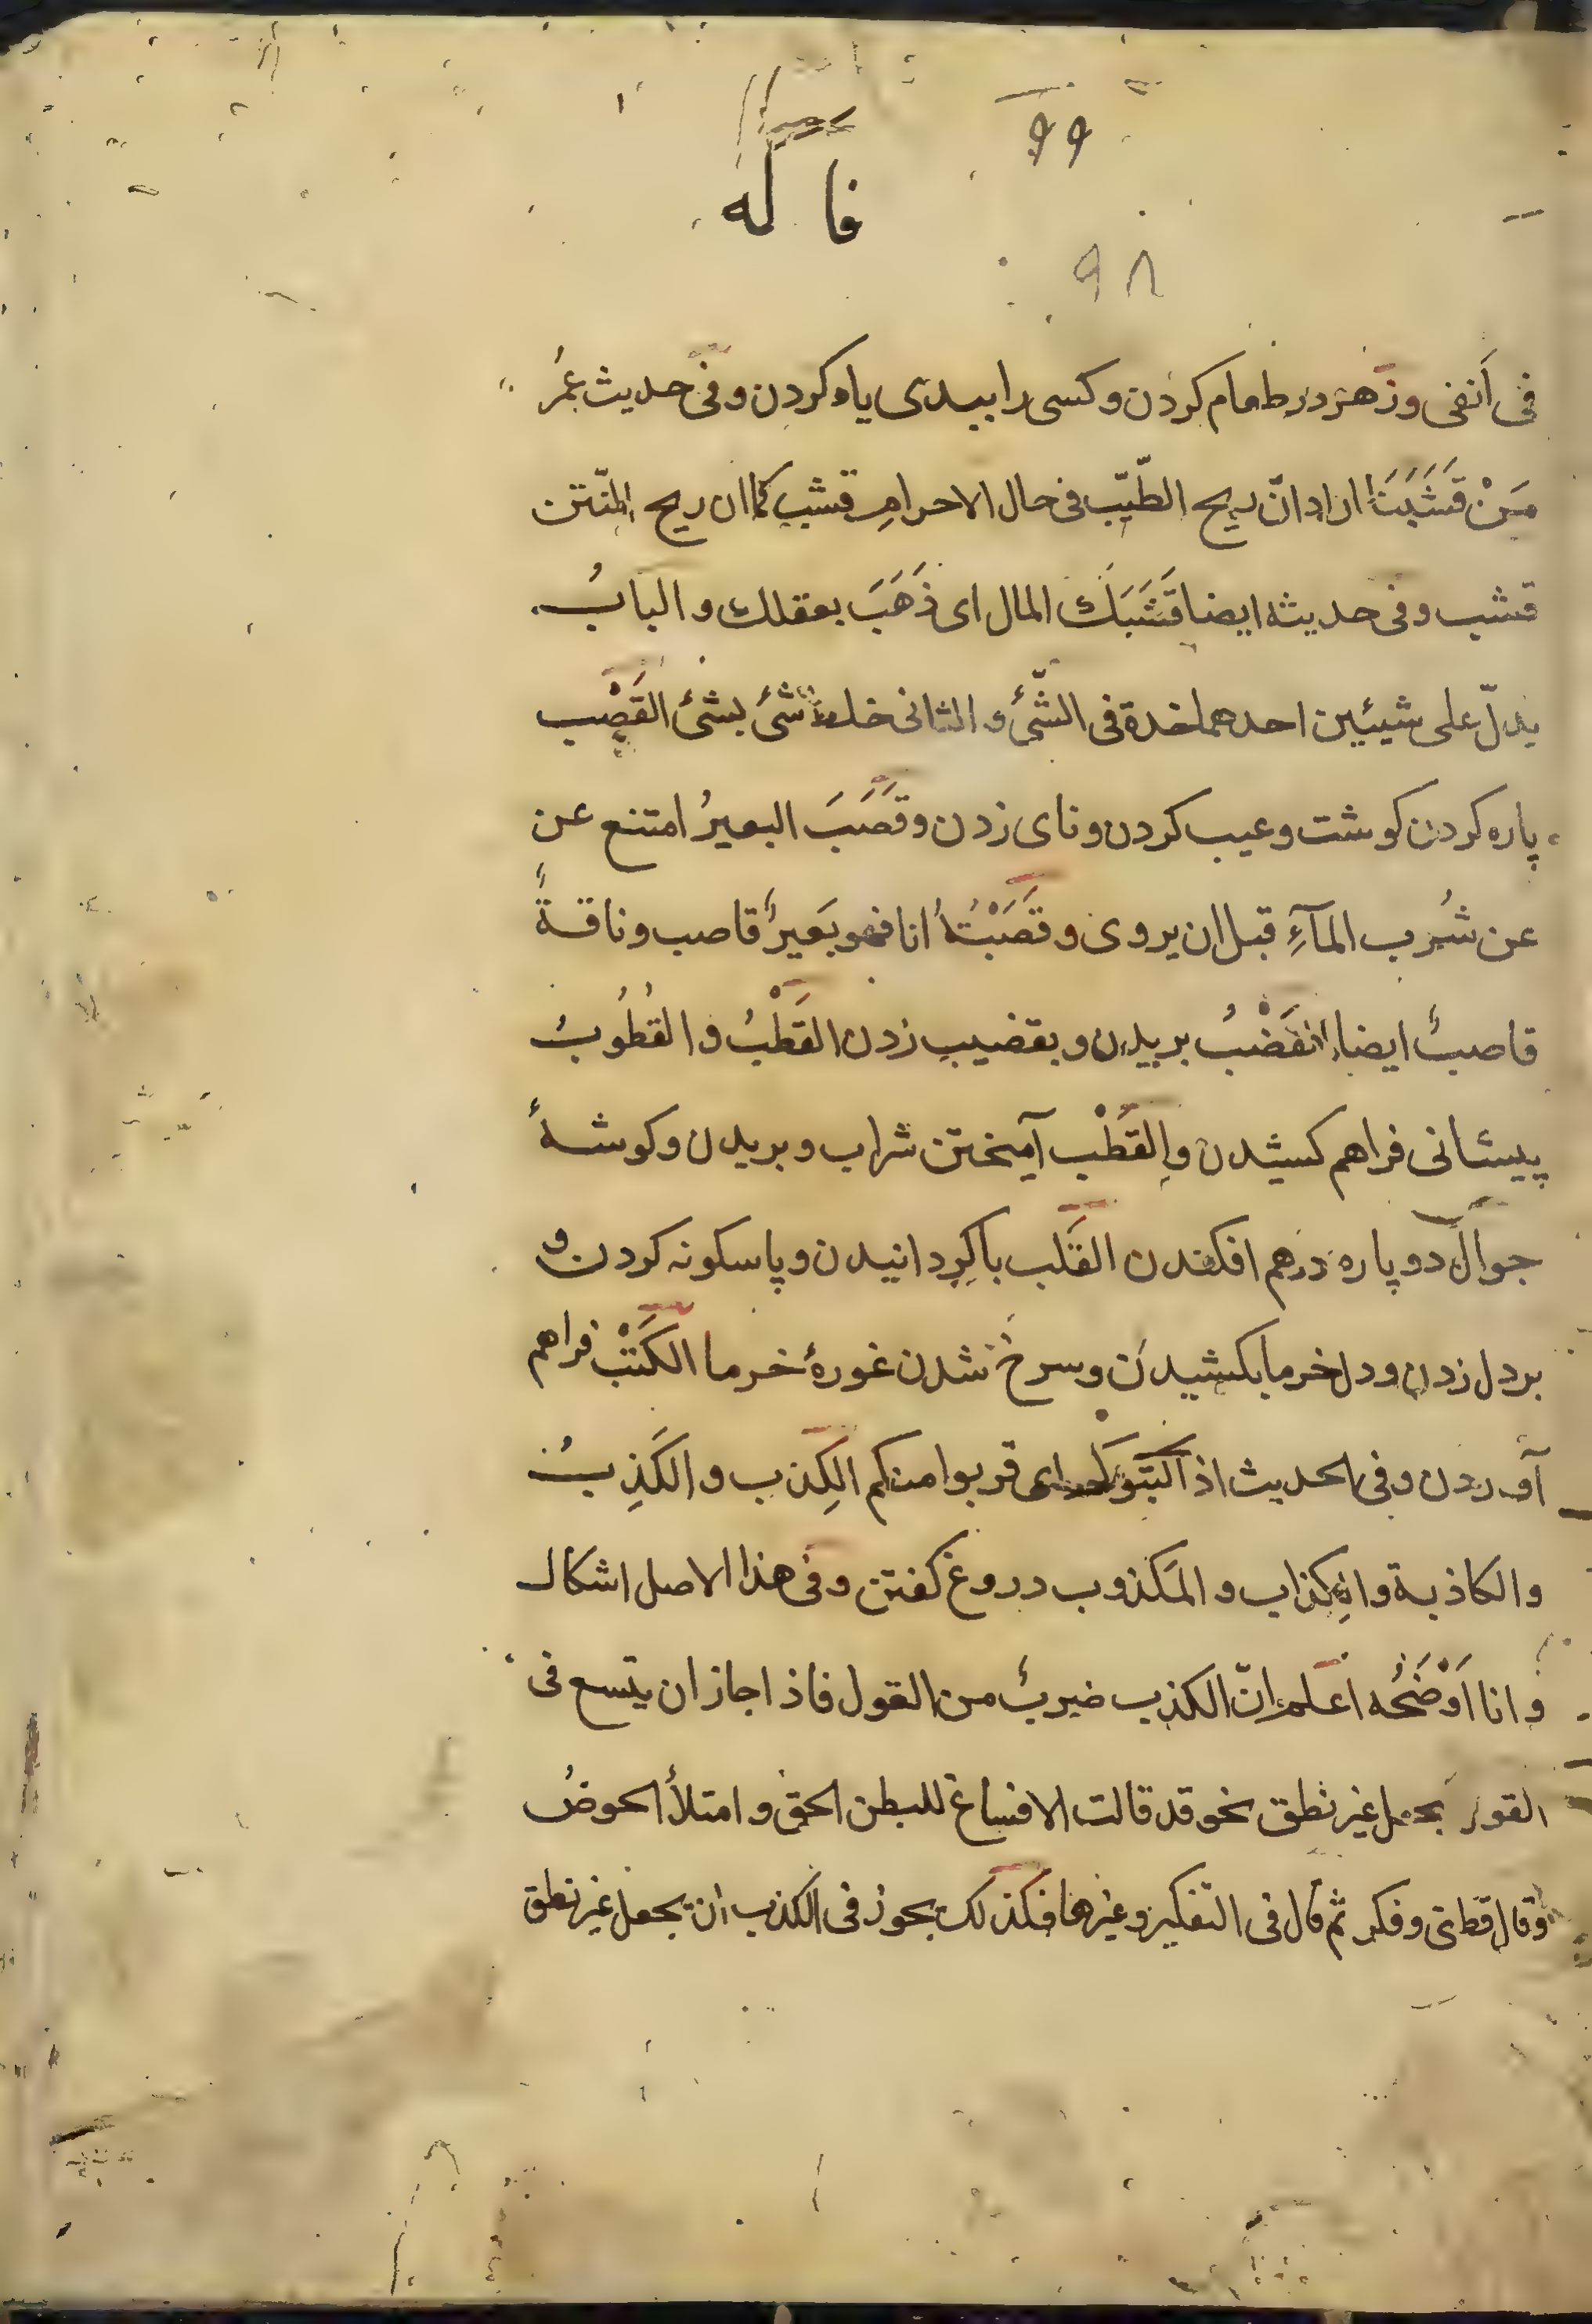 ۹۹
فا له
۹۸
فی اَنفی وزَهر در طعام کردن و کسی را ببدی یاد کردن و فی حدیث عُمر
مَنْ قَشَبَنَا اراد انّ ریح الطّیّب فی حال الاحرامِ قشب کما ان ریح المنّتن
قشب و فی حدیثه ایضا قَشَبَكَ المال ای ذَهَبَ بعقلك و البابُ
یدلّ علی شیئین احدهما خدة فی الشّئ و الثانی خلط شئ بشئ القَصْب
پاره کردن کوشت و عیب کردن و نای زدن و قَصَبَ البعیرُ امتنع عن
عن شُرب المآءِ قبل ان یروی و قَصَبْتُهُ انا فهو بَعیرٌ قاصب و ناقةٌ
قاصبٌ ایضا القَضْبُ بریدن و بقضیب زدن القَطْبُ و القُطُوبُ
پیشانی فراهم کشیدن و القَطْب آمیختن شراب و بریدن و کوشهٔ
جوال دو پاره درهم افکندن القَلب باکِردانیدن و پاسکونه کردن و
بر دل زدن و دل خرما بکشیدن و سرخ شدن غورهٔ خرما الکَتْب فراهم
آوردن و فی الحدیث اذا اکتبوکم ای قربوا منکم الکِذب و الکَذِبُ
والکاذبة و الکِذاب و المَکذوب دروغ کفتن و فی هذا الاصل اشکال
و انا اَوْضَحُه اعلم انّ الکذب ضربٌ من القول فاذا جاز ان یتسع فی
القول بجعل غیر نطق نحو قد قالت الانساغ للبطن الحق و امتلأ الحوضُ
وقال قطنی و فکر ثم قال فی التفکیر و غیرها فکذلك یجوز فی الکذب ان یجعل غیر نطق